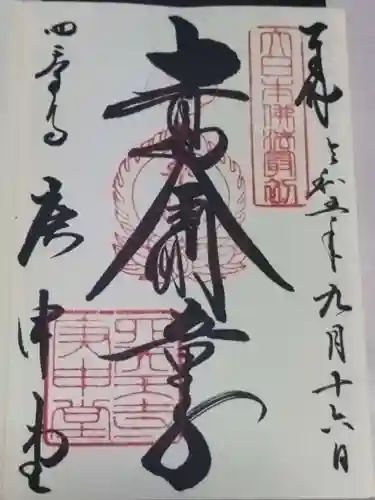 奉拝 令和五年九月十六日
大日本佛法最初
青面金剛童子
四天王寺
庚申堂
四天王寺
庚申堂